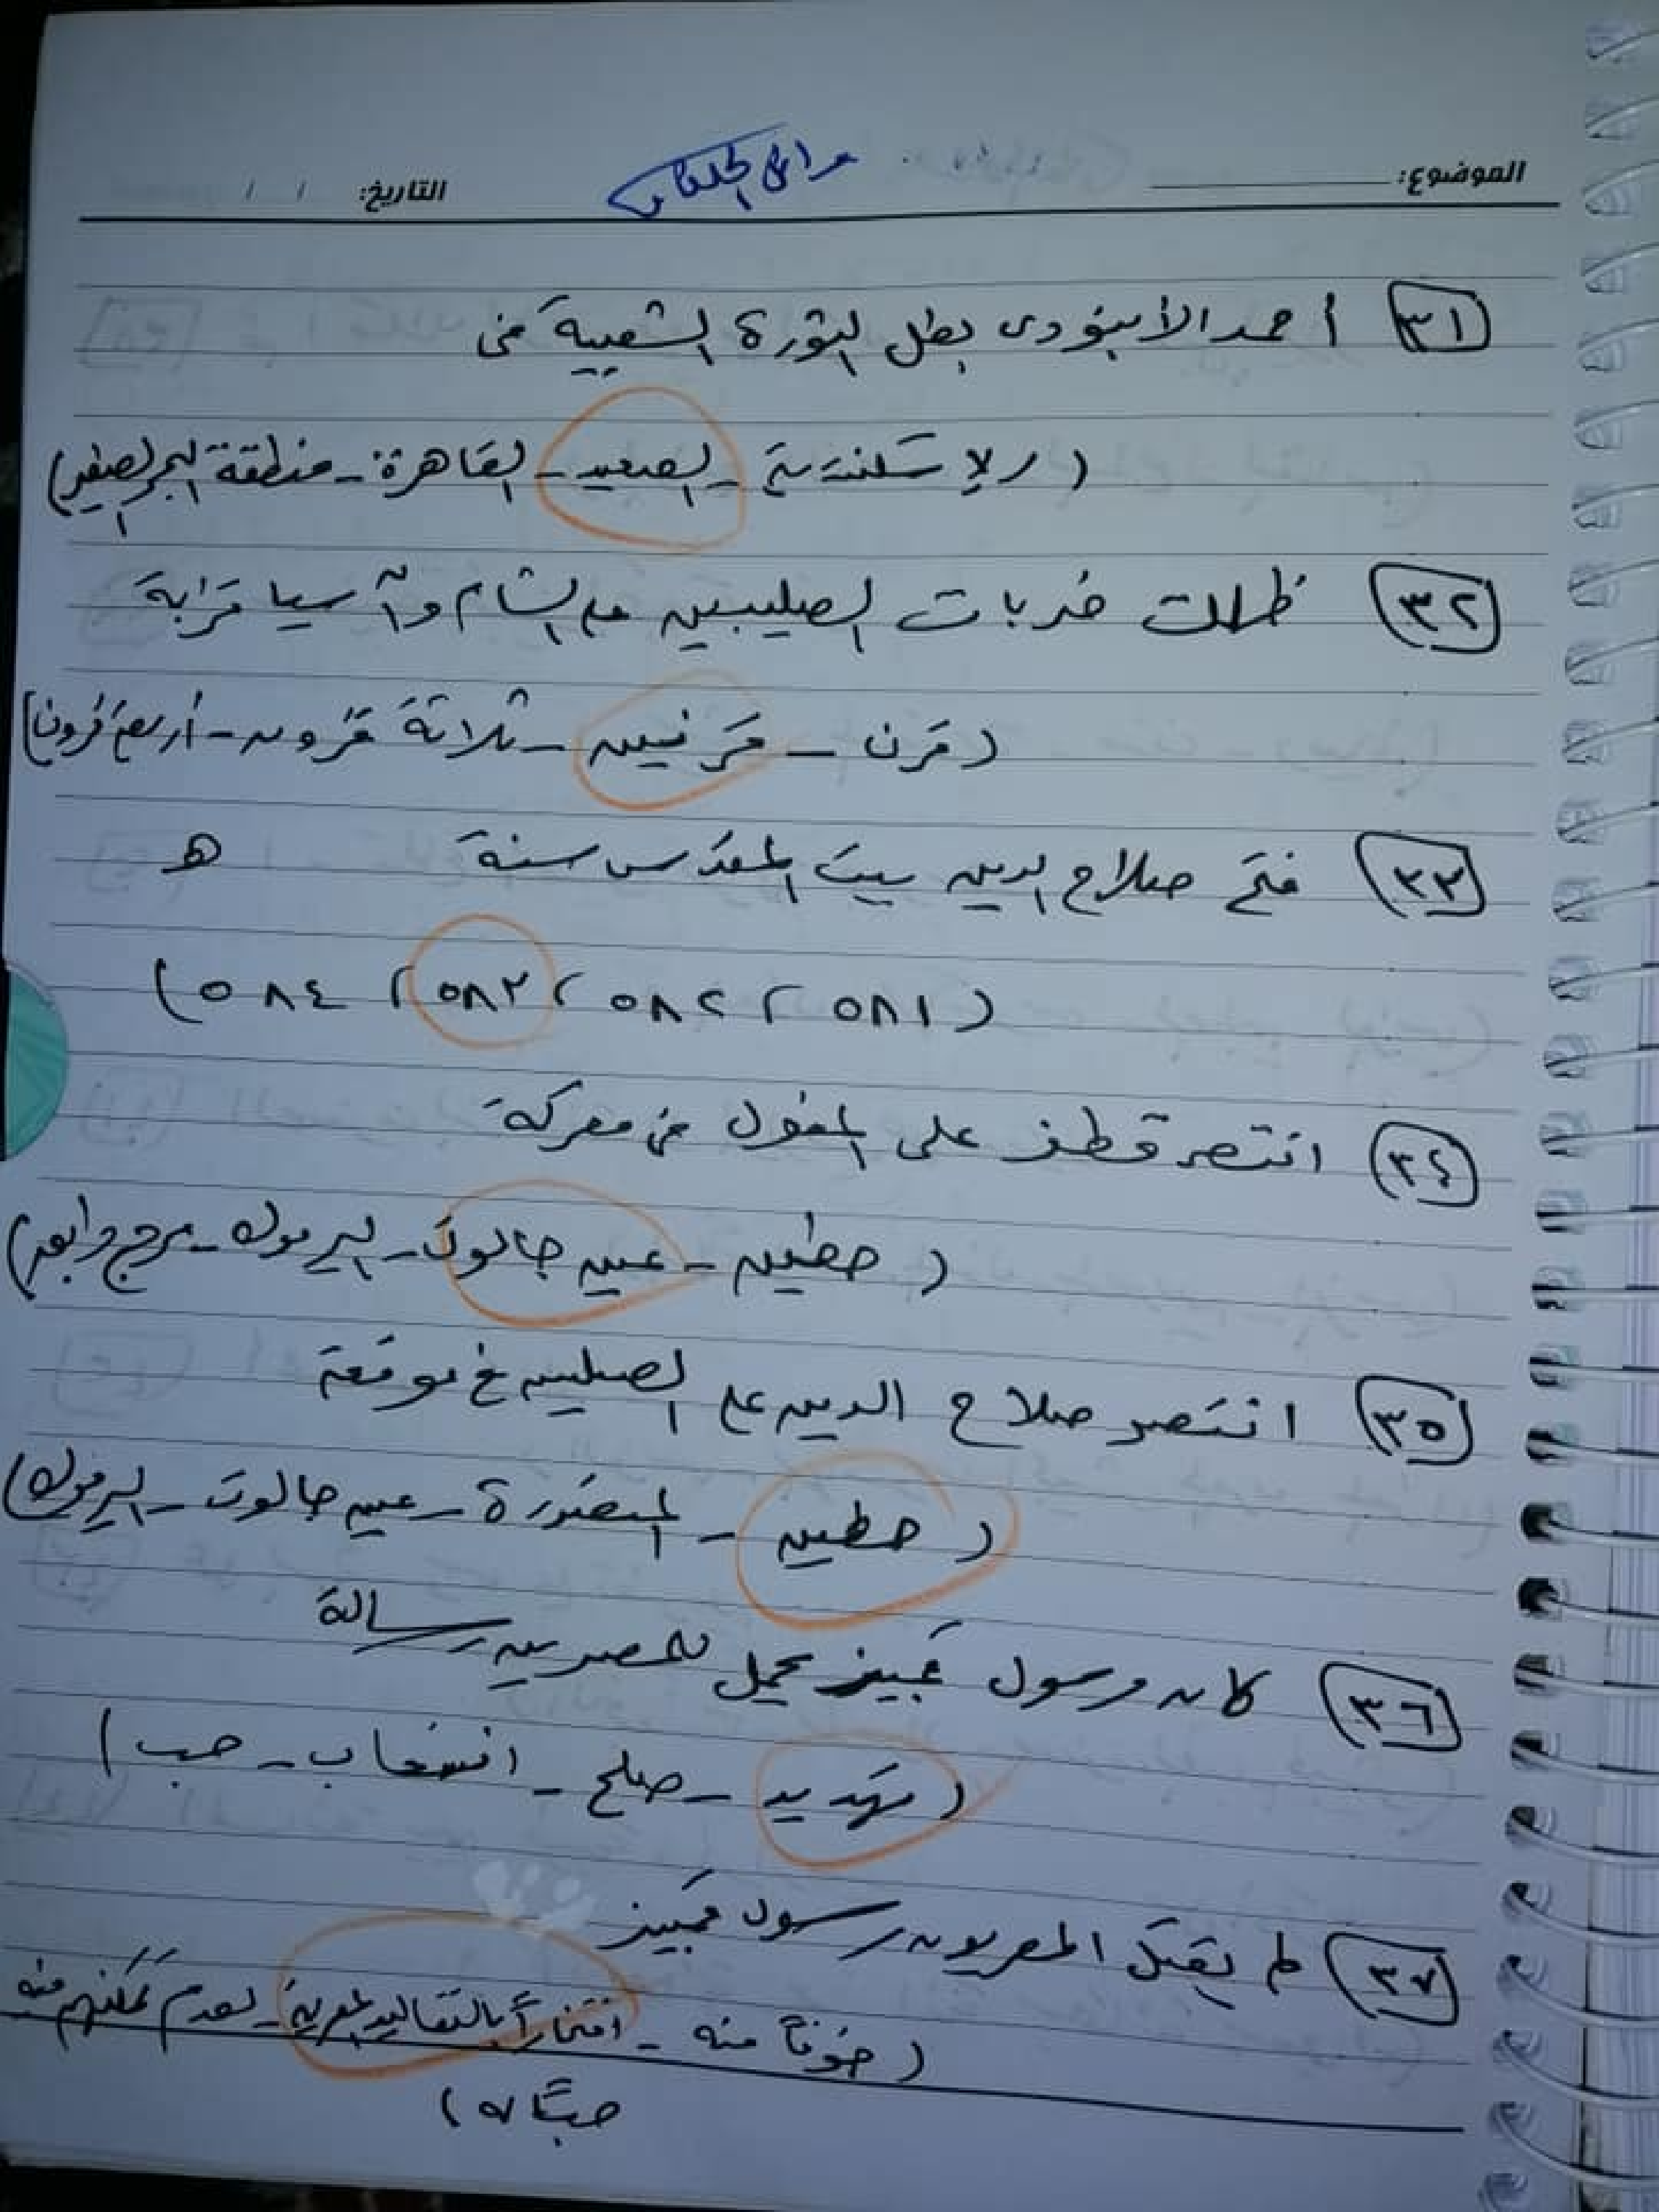 الموضوع: التاريخ: / /
٣١ أحمد الأبنودى بطل الثورة الشعبية فى
( الإسكندرية - الصعيد - القاهرة - منطقة البحر الصغير)
٣٢ ظلت ضربات الصليبيين على الشام وآسيا قرابة
( قرن - قرنين - ثلاثة قرون - أربعة قرون)
٣٣ فتح صلاح الدين بيت المقدس سنة ه
( ٥٨١ ، ٥٨٢ ، ٥٨٣ ، ٥٨٤ )
٣٤ انتصر قطز على المغول فى معركة
( حطين - عين جالوت - اليرموك - مرج دابق)
٣٥ انتصر صلاح الدين على الصليبين فى موقعة
( حطين - المنصورة - عين جالوت - اليرموك)
٣٦ كان رسول قمبيز يحمل للمصريين رسالة
( تهديد - صلح - انسحاب - حب )
٣٧ لم يقبل المصريون رسول قمبيز
( خوفاً منه - افتخاراً بالتقاليد المصرية - لعدم تمكنهم منه
حبًا له )